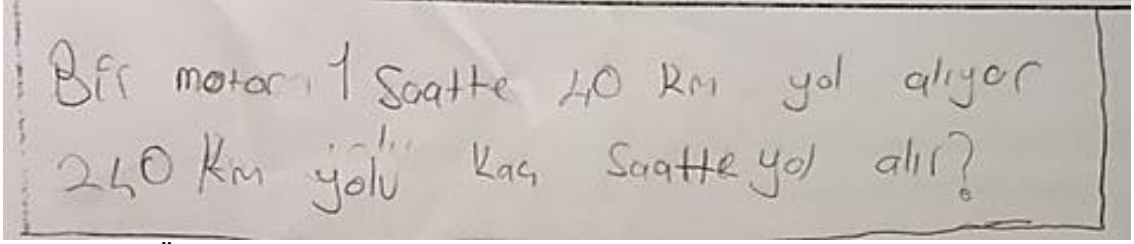 Bir motor 1 Saatte 40 km yol alıyor
240 Km yolu kaç Saatte yol alır?